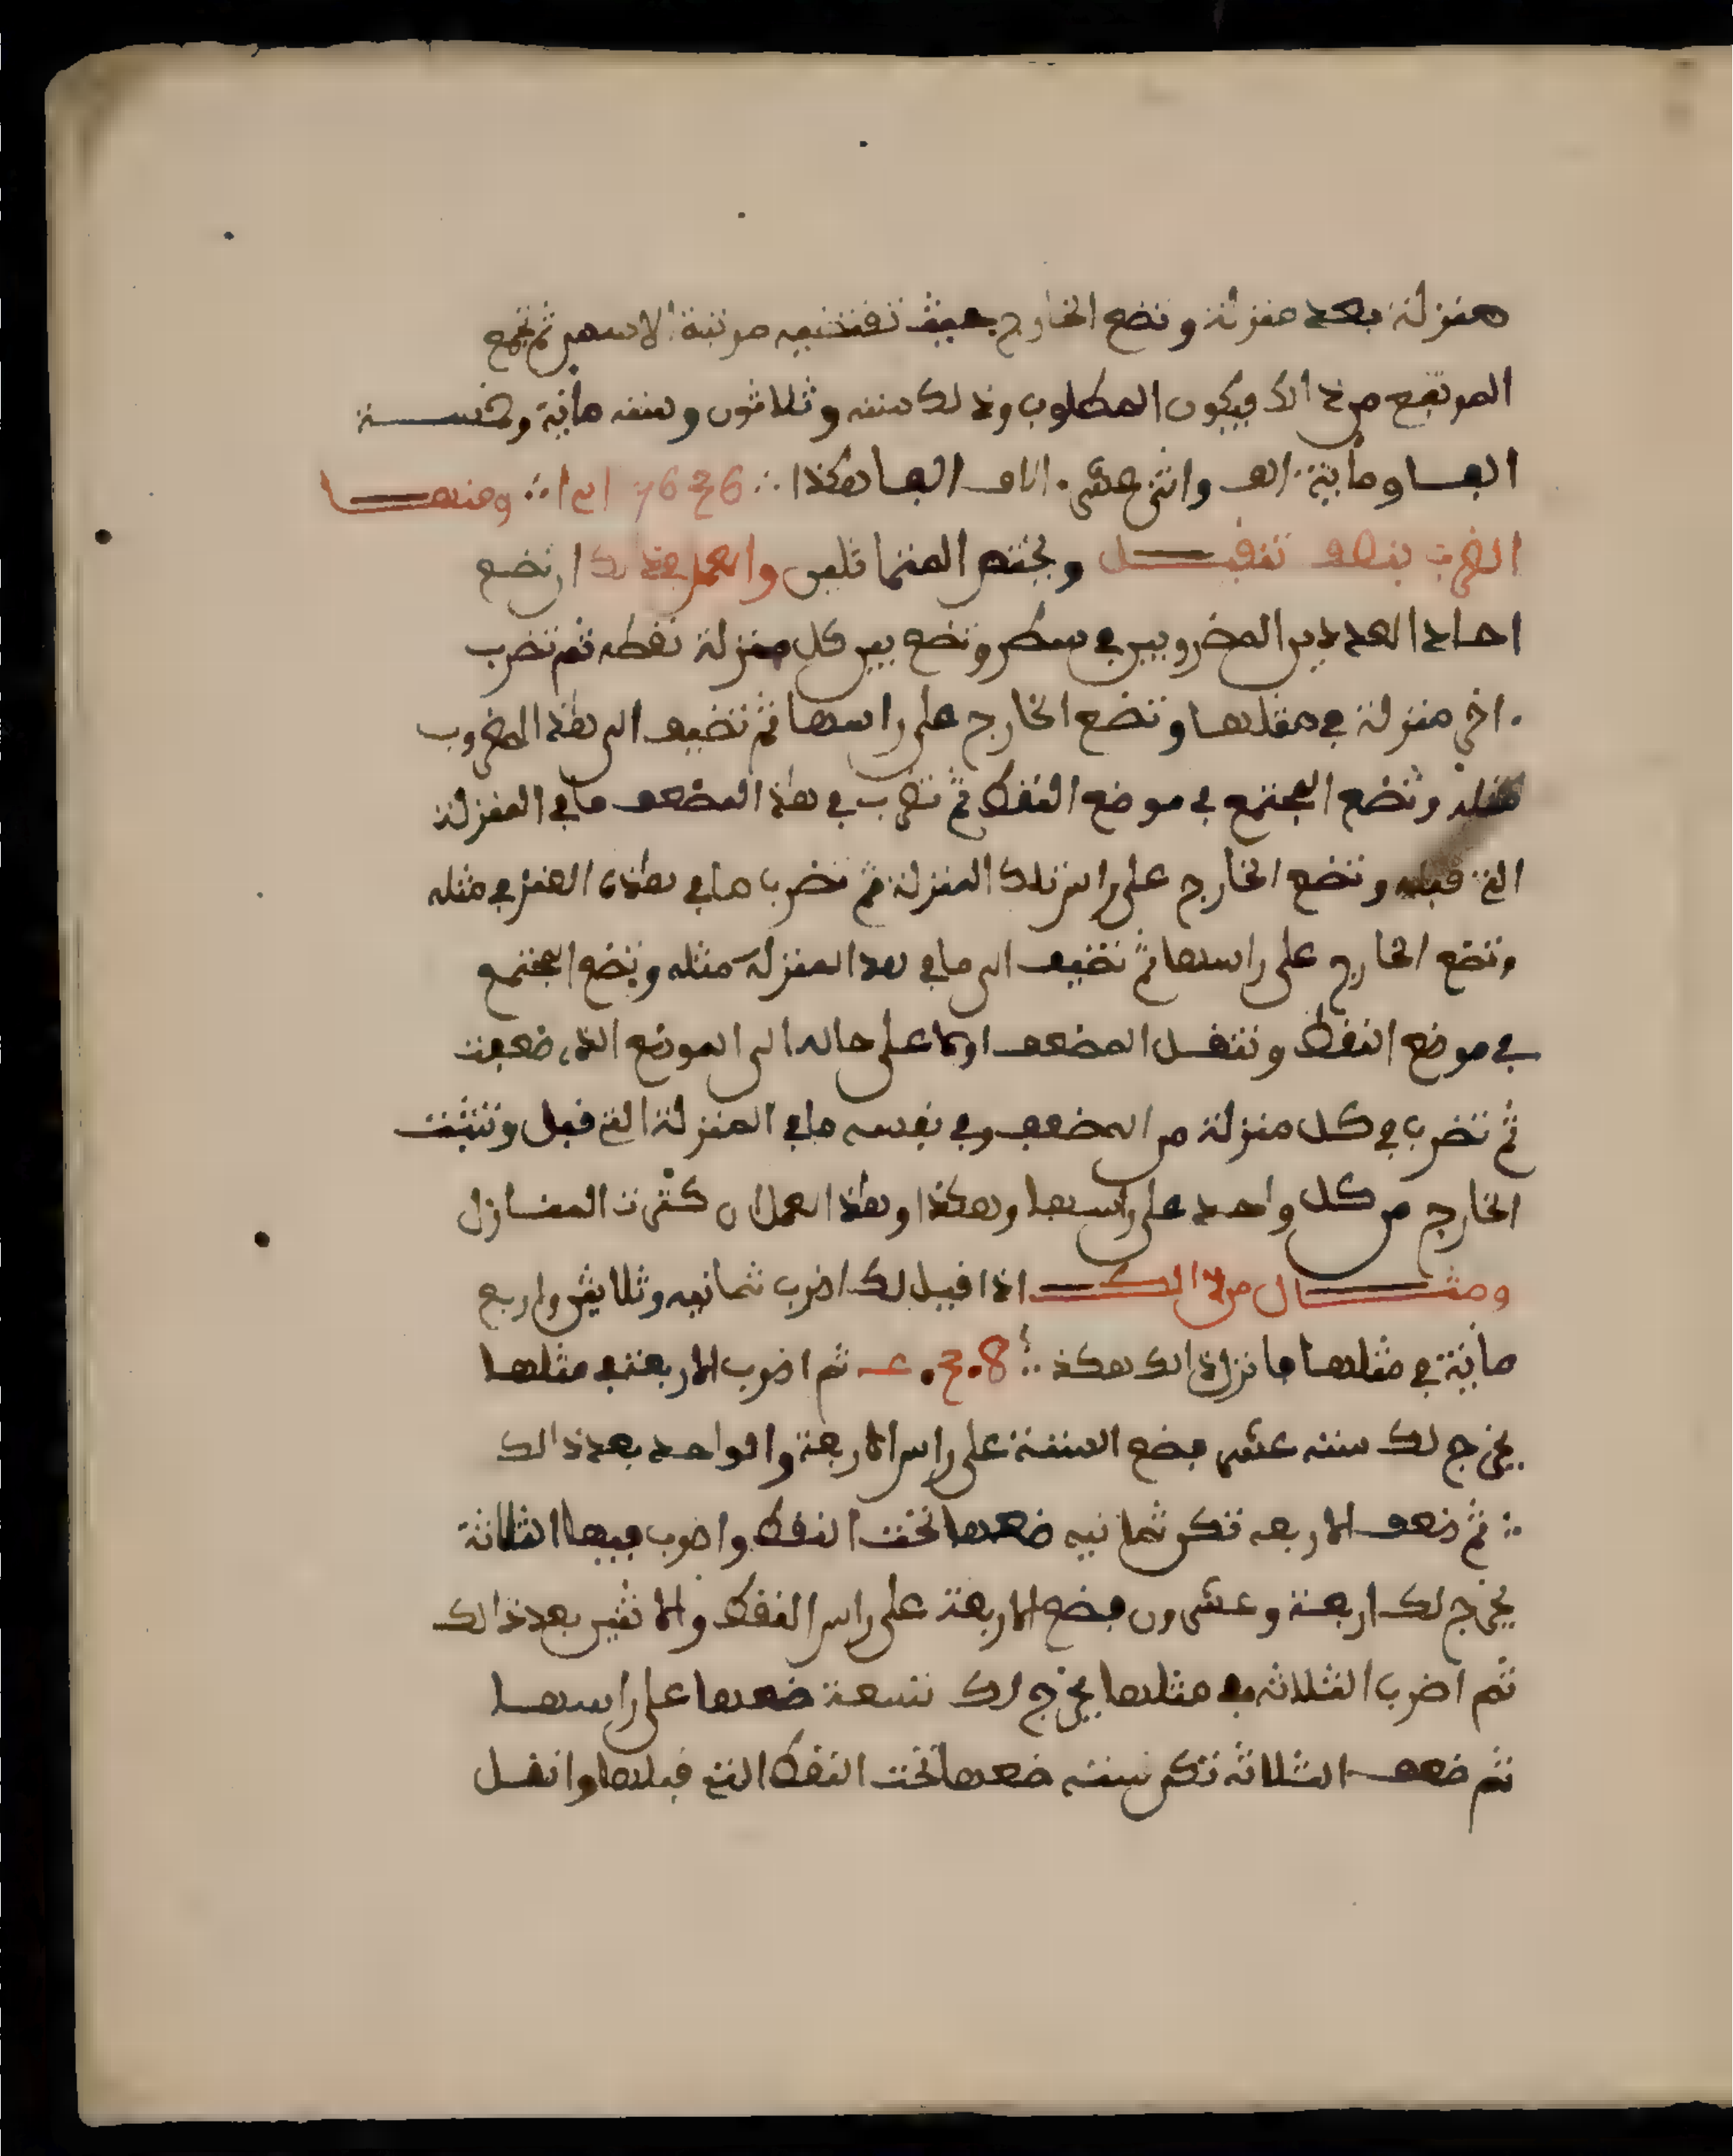 منزلة بعد منزلة وتضع الخارج بحيث تقتضيه مرتبة الاسين ثم تجمع
المرتفع من ذالك فيكون المطلوب وذلك ستة وثلاثون وستة مائة وخمسة
الفا ومائة الف واثني عشر الاف الفا هكذا ∴ ومنها
الضرب بنصف تنقيل ويختص المتماثلين والعمل في ذلك ان تضع
احد العددين المضروبين في سطر وتضع بين كل منزلة نقطه ثم تضرب
اخر منزلة في مثلها وتضع الخارج على راسها ثم تضيف الى هذا المضروب
مثله وتضع المجتمع في موضع النقط ثم تضرب في هذا المضعف ما في المنزلة
التي قبله وتضع الخارج على راس تلك المنزلة ثم تضرب ما في هذه المنز في مثله
وتضع الخارج على راسها ثم تضيف الى ما في هذ المنزلة مثله وتضع المجتمع
في موضع النقط وتنقل المضعف اولا على حاله الى الموضع الذي ضعفت
ثم تضرب في كل منزلة من المضعف وفي نفسه ما في المنزلة التي قبل وتثبت
الخارج من كل واحد على راسها وهكذا وهذا العمل ان كثرت المنازل
ومثال من ذالك اذا قيل لك اضرب ثمانيه وثلاثين واربع
مائة في مثلها فانزل ذالك هكذ ∴ 8.3.4 ثم اضرب الاربعة في مثلها
يخرج لك ستة عشر فضع الستة على راس الاربعة والواحد بعد ذالك
∴ ثم ضعف الاربعه تكن ثمانيه ضعها تحت النقط واضرب فيها الثلاثة
يخرج لك اربعة وعشرون فضع الاربعة على راس النقط والاثنين بعد ذالك
ثم اضرب الثلاثه في مثلها يخرج لك تسعة ضعها على راسها
ثم ضعف الثلاثه تكن ستة ضعها تحت النقط التي قبلها وانقل